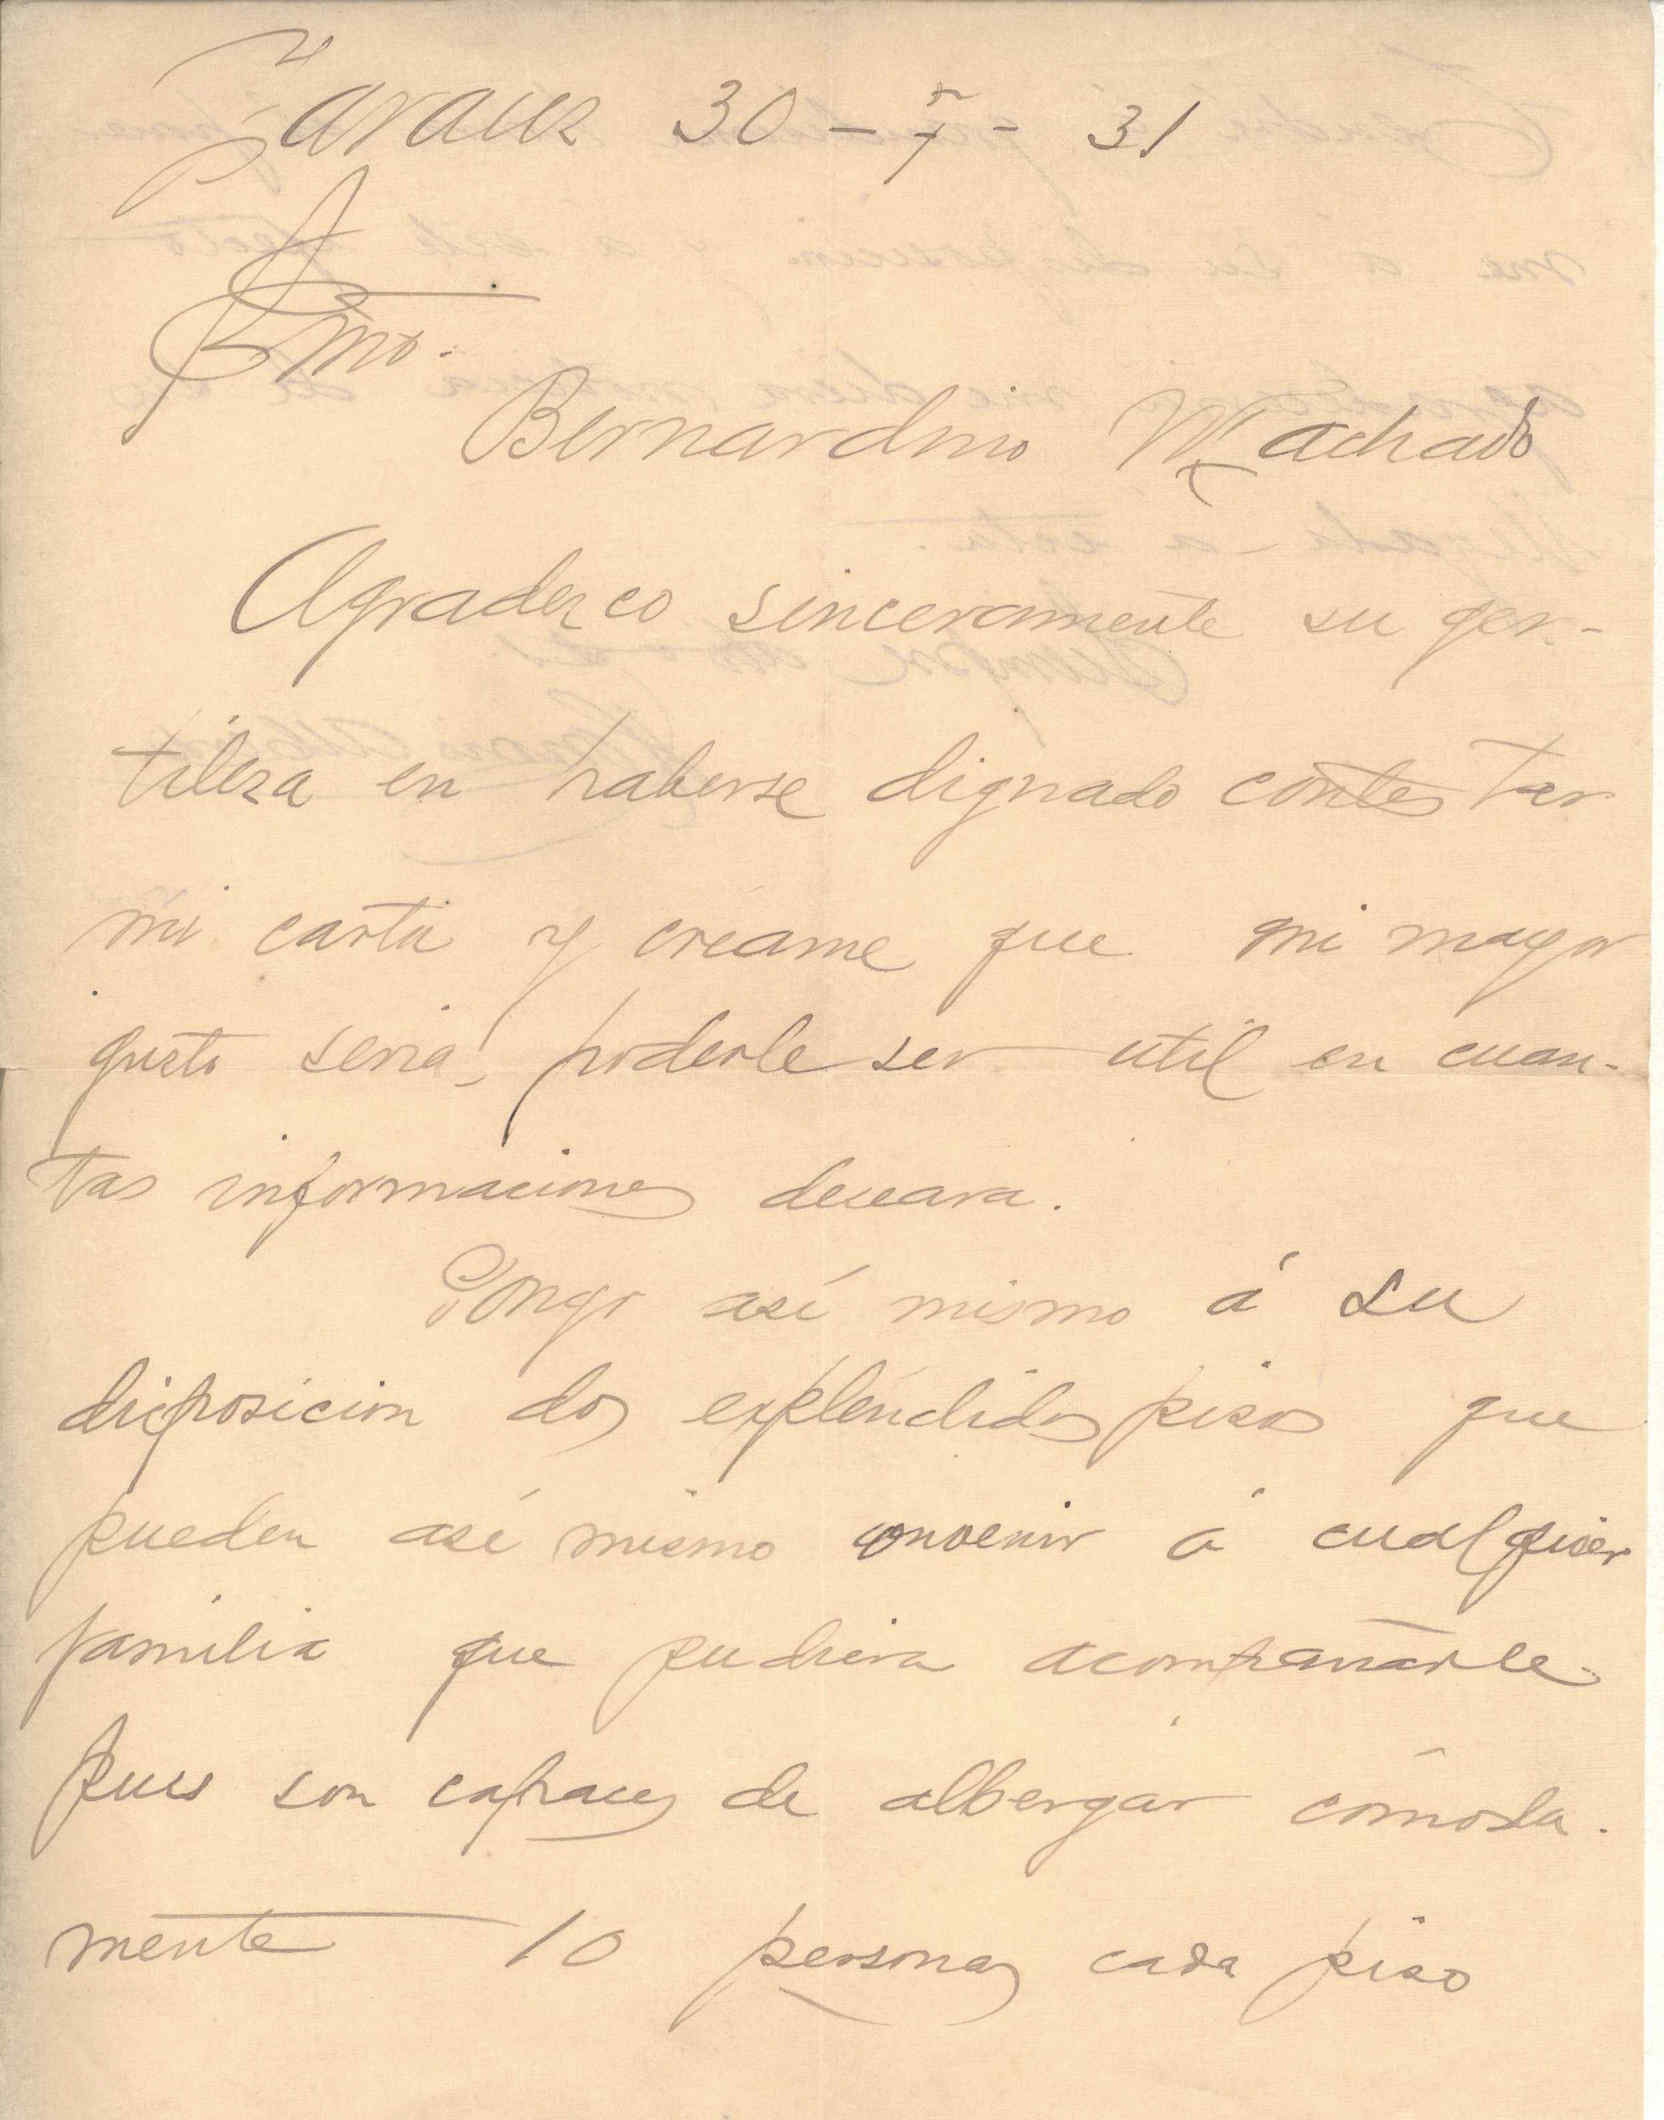 Zarauz 30 - 7 - 31
Exmo.
Bernardino Machado
Agradezco sinceramente su gen-
tileza en haberse dignado contestar
mi carta y créame que mi mayor
gusto seria, poderle ser util en cuan-
tas informaciones deseara.
Pongo así mismo á su
disposicion dos expléndidos pisos que
pueden asi mismo convenir á cualquier
familia que pudiera acompañarle
pues son capaces de albergar cómoda-
mente 10 personas cada piso